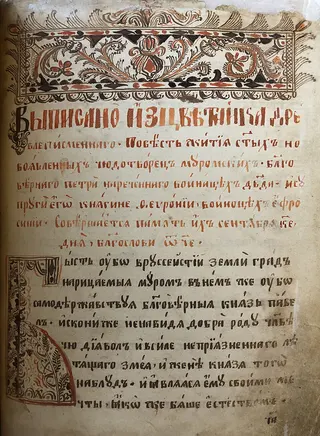 Выписано изцвѣтника дре
влеписменнаго · Повѣсть жития ст҃ыхъ но
воявленныхъ чюдотворецъ муромскихъ · благо
вѣрнаго петра нареченнаго воиноцѣхъ дв҃да · и су
пруги его княгине ѳевронии воиноцѣхъ ефро
синии · Совершается память ихъ сентября ке
дня , благослови ѿче ·
Бысть ѹбо врусѣистеи земли градъ
нарицаемыи муромъ · внемъ же ѹбо
самодержавствуя благовѣрныи князь паве
лъ · искониже ненавидяи добра роду человѣ
чю дияволъ · ивсели неприязненнаго лѣ
тащаго змея · кженѣ князя того
наблудъ · иявлаяся ему своими ме
чты · якоже баше естествомъ ·